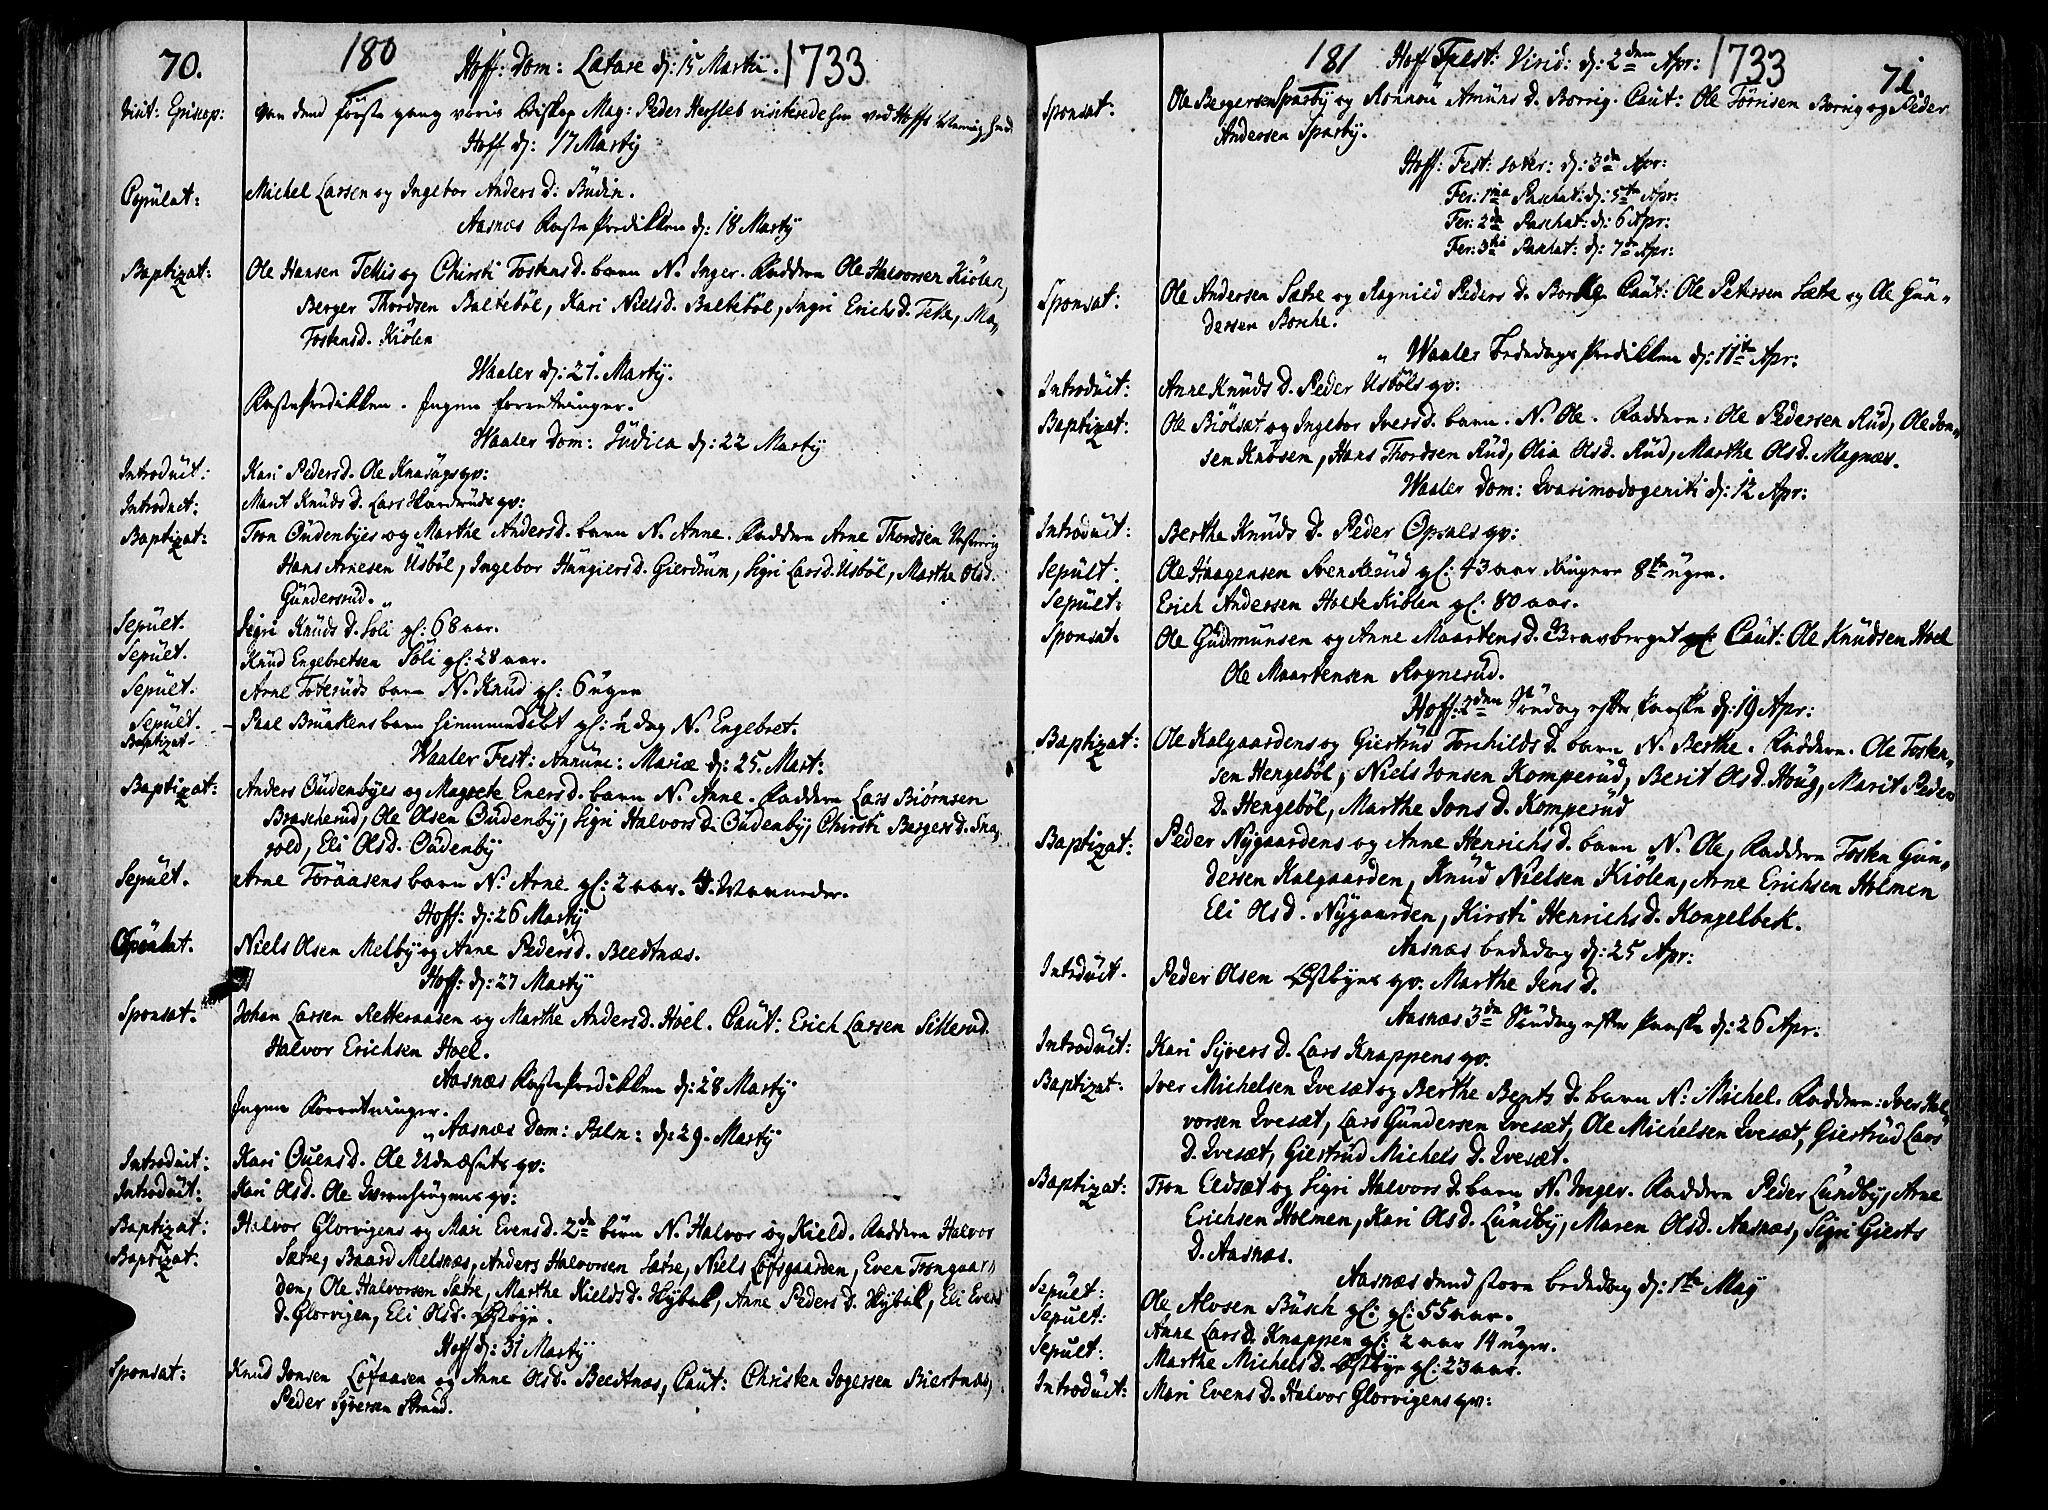 70. 180 Hoff: Dom: Lætare dj: 15 Martij. 1733
Visit: Episcop: den første gang voris Biskop Mag: Peder Hersleb visiterede her ved Hoffs
Hoff dj: 17 Martij
Copulat: Michel Larsen og Ingebor Anders D. Büdin.
Aasnæs Fastepredikken dj: 18 Martij
Baptizat: Ole Hansen Tellis og Chirsti Tostens D. barn N. Inger. Fadderne Ole Halvorsen Kiølen,
Berger Thordsen Baltebøl, Kari Niels D. Baltebøl, Ingri Erichs D.
Tostens D. Kiølen
Waaler dj: 21. Martij.
Fastepredikken. Ingen forretninger.
Waaler Dom: Jüdica dj: 22 Martij
Introduct: Kari Peders D. Ole Knasügs qv:
Introduct: Marit Knüds D. Lars qv:
Baptizat: Tron Oüdenbyes og Marthe Anders D. barn N. Anne. Faddern Arne Thordsen
Hans Arnesen Üsbøl, Ingebor Hüngiers D. Gierdrüm, Sigri Lars D. Üsbøl, Marthe Ols D.
Gündersrud.
Sepült. Sigri Knüds D. Söli gl: 68 aar.
Sepült. Knüd Engebretsen Söli gl: 28 aar.
Sepült. Arne Toterüds barn N. Knüd gl: 6 üger
Sepült. Paal Brüaskens barn hiemmedøbt gl: 1 dag N. Engebret.
Baptizat.
Waaler Fest: Annünc: Mariæ dj: 25. Mart:
Baptizat: Anders Oüdenbyes og Magrete Eners D. barn N. Anne. Faddern Lars Biørnsen
Brascherud, Ole Olsen Oüdenby, Sigri Halvors D. Oüdenby, Chirsti Bergers D. Sna,
rold, Eli Ols D. Oüdenby
Sepült. Arne Toraasens barn N. Arne gl: 2 aar. 4. Maaneder.
Hoff: dj: 26 Martij
Copulat. Niels Olsen Melby og Anne Peders D. Beedtnæs.
Hoff: dj: 27 Martij
Sponsat. Johan Larsen Retteraasen og Marthe Anders D. Hoel. Caüt: Erich Larsen Sillerud.
Halvor Erichsen Hoel.
Aasnæs Fastepredikken dj: 28 Martij
Ingen Forretninger.
Aasnæs Dom: Palm: dj: 29. Martij
Introduct: Kari Oüens D. Ole Udnæsets qv:
Introdüt: Kari Ols D. Ole qv:
Baptizat: Halvor Glorvigens og Mari Evens D. 2de børn N. Halvor og Kield. Faddern Halvor
Baptizat. Sætre, Baard Melsnæs, Anders Halvorsen Sætre, Niels Løfsgaarden, Even Trongaar,
den, Ole Halvorsen Sætre, Marthe Kields D. Hybel, Anne Peders D. Hybel, Eli Evens
D. Glorvigen, Eli Ols D. Østbye.
Hoff dj: 31 Martij
Sponsat: Knüd Jonsen Løfaasen og Anne Ols D. Beedtnæs, Caüt: Christen Jogersen Biertnæs,
Peder Syversen Strand.
181 Hoff Fest: Virid: dj: 2den Apr: 1733 71.
Sponsat: Ole Bergersen Sparby og Ronnou Amüns D. Borrig. Caut: Ole Törrisen Borrig og Peder
Andersen Sparby.
Hoff: Fest: dj: 3de Apr:
Fer: 1ma Paschat: dj: 5te Apr:
Fer: 2da Paschat: dj: 6 Apr:
Fer: 3tia Paschat: dj: 7de Apr:
Sponsat: Ole Andersen Sætre og Ragnild Peders D. Borche. Caüt: Ole Petersen Sætre og Ole Gün,
dersen Borche.
Waaler Bededags Predikken dj: 11te Apr:
Introdüct: Anne Knüds D. Peder Üsbøls qv:
Baptizat: Ole Biölset og Ingebor Ivers D. barn. N. Ole. Faddern: Ole Pedersen Rüd, Ole Jon,
sen Knüsen, Hans Thordsen Rüd, Olia Ols D. Rüd, Marthe Ols D. Magnæs.
Waaler Dom: Qvasimodogeniti dj: 12 Apr:
Introdüct: Berthe Knüds D. Peder Opsals qv:
Sepült: Ole Haagensen Svenkerüd gl: 43 aar ringere 8te üger.
Sepült: Erich Andersen Holte Kiølen gl: 80 aar.
Sponsat. Ole Güdmünsen og Anne Maartens D. Bravberget Caüt: Ole Knüdsen Hoel
Ole Maartensen Rognerüd.
Hoff: 2den Söndag efter Paaske dj: 19 Apr:
Baptizat: Ole Kalgaardens og Giertrüd Torchilds D. barn N. Berthe. Faddern. Ole Tosten,
sen Hengebøl, Niels Jonsen Komperüd, Berit Ols D. Hoüg, Marit Peders
D. Hengebøl, Marthe Jons D. Komperüd
Baptizat: Peder Nygaardens og Anne Henrichs D. barn N. Ole, Faddern Tosten Gün,
dersen Kalgaarden, Knüd Nielsen Kiølen, Arne Erichsen Holmen
Eli Ols D. Nygaarden, Kirsti Henrichs D. Kongelbek.
Aasnæs bededag dj: 25 Apr:
Introdüct. Peder Olsen Østbyes qv. Marthe Jens D.
Aasnæs 3de Söndag efter Paaske dj: 26 Apr:
Introdüct: Kari Syvers D. Lars Knappens qv.
Baptizat: Iver Michelsen Qvesæt og Berthe Bents D. barn N. Michel. Faddern: Iver Hal,
vorsen Qvesæt, Lars Gündersen Qvesæt, Ole Michelsen Qvesæt, Giertrüd Lars
D. Qvesæt, Giertrüd Michels D. Qvesæt.
Baptizat: Tron Eldsæt og Sigri Halvors D. barn N. Inger. Faddern Peder Lündby, Arne
Erichsen Holmen, Kari Ols D. Lündby, Maren Ols D. Aasnæs, Sigri Gierts
D. Aasnæs.
Aasnæs dend store bededag dj: 1te Maj
Sepült: Ole Alvsen Büsch gl: gl: 55 aar.
Sepült: Anne Lars D. Knappen gl: 2 aar 14 üger.
Sepült: Marthe Michels D. Østbye gl: 23 aar.
Introdüct: Mari Evens D. Halvor Glorvigens qv: